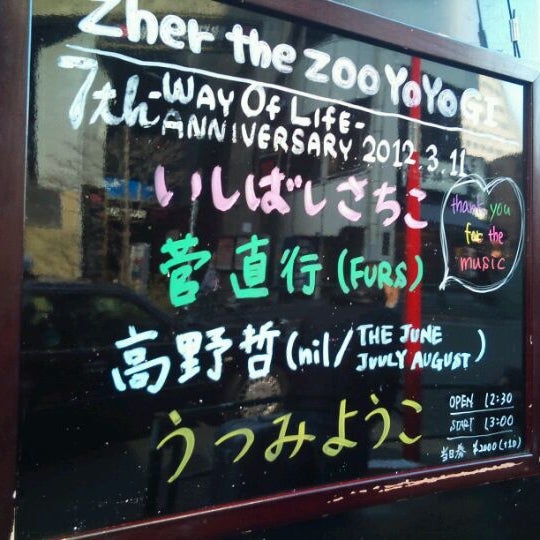 Zher the ZOO YOYOGI
7th -WAY OF LIFE-
ANNIVERSARY 2012.3.11
いしばしさちこ
thank you
for the
music
菅直行 (FURS)
高野哲 (nil/THE JUNE
JUULY AUGUST)
うつみようこ
OPEN 12:30
START 13:00
当日券 ¥2000 (+1D)